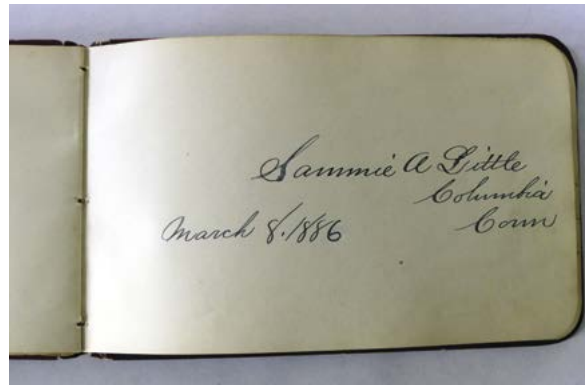 Sammie A Little
Columbia
Conn
March 8. 1886